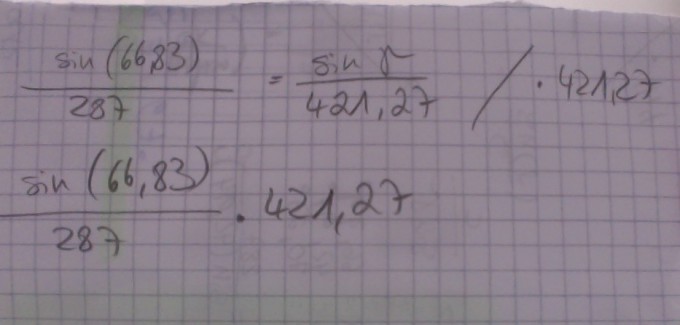 sin (66,83) / 287 = sin γ / 421,27 / · 421,27
sin (66,83) / 287 · 421,27